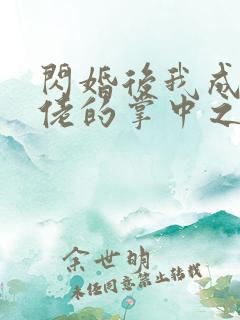 閃婚後我成
佬的掌中之
余世明
未经同意禁止转载